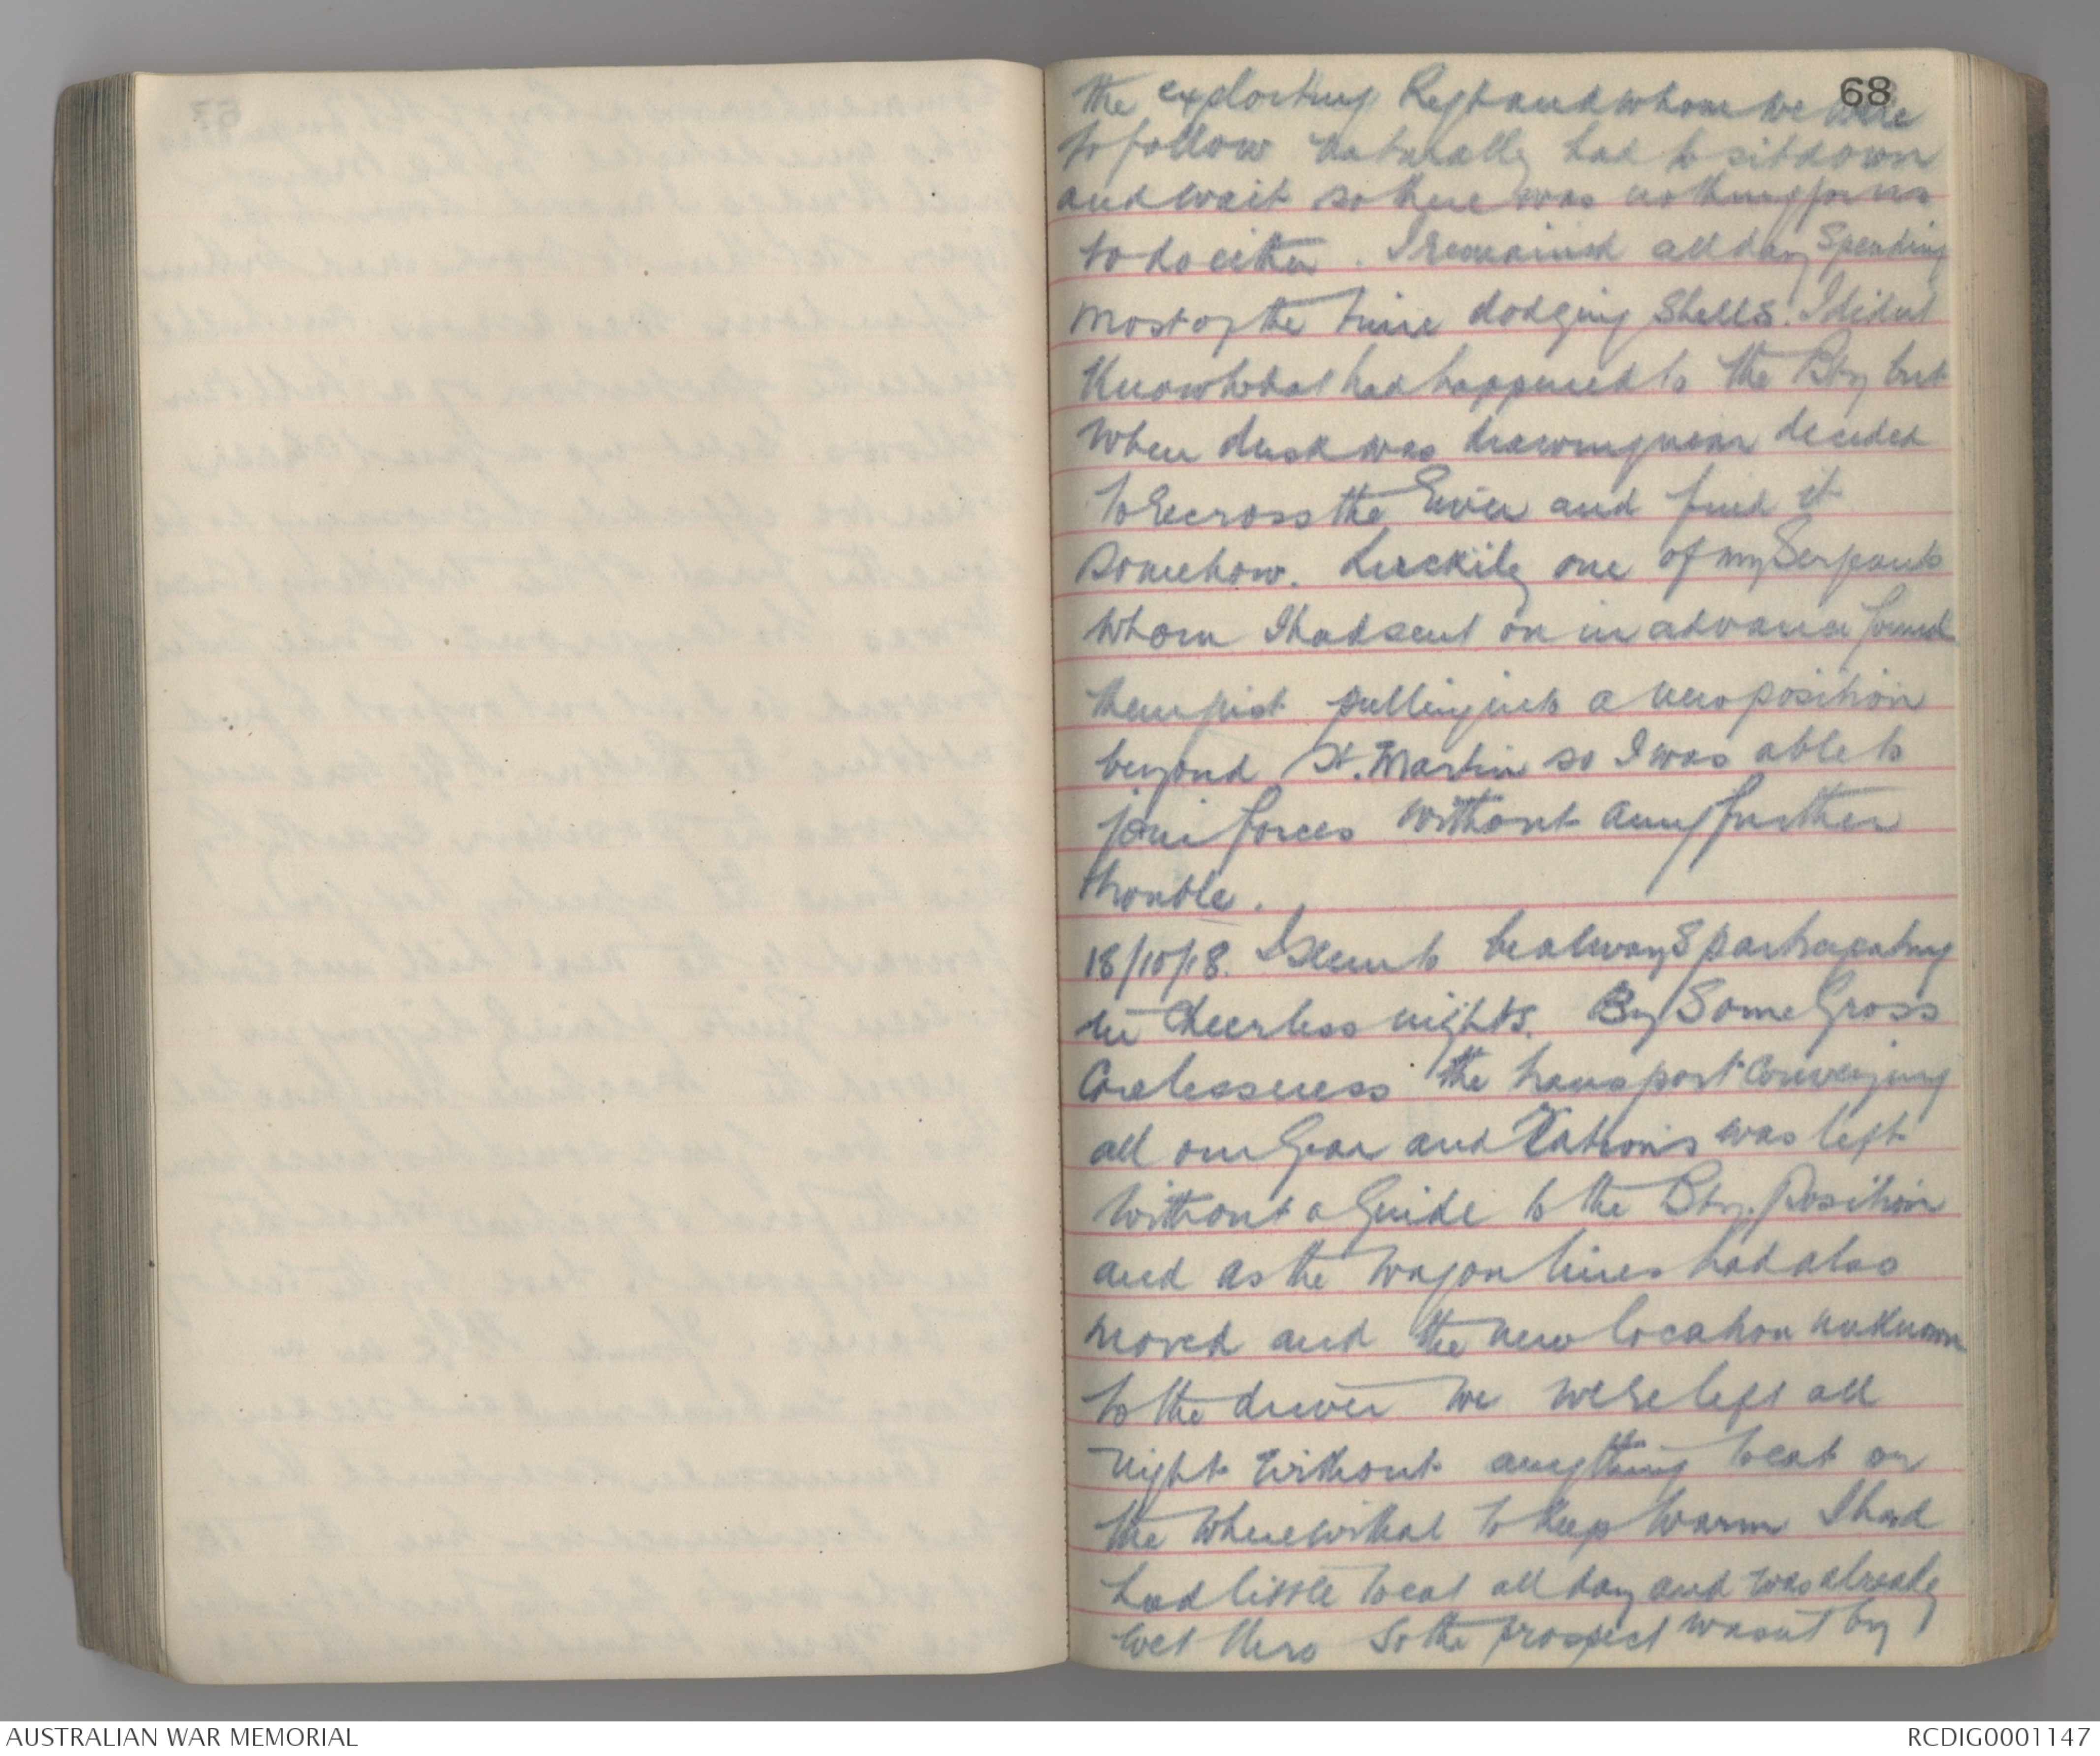 68
the exploiting Regt and whom we were
to follow naturally had to sit down
and wait so there was nothing for us
to do either. I remained all day spending
most of the time dodging shells. I didnt
know what had happened to the Bty but
when dusk was drawing near decided
to recross the River and find it
somehow. Luckily one of my Sergeants
whom I had sent on in advance found
them just pulling into a new position
beyond St. Martin so I was able to
join forces without any further
trouble.
18/10/18. I seem to be always participating
in cheerless nights. By some Gross
Carelessness the transport conveying
all our Gear and Rations was left
without a Guide to the Bty. Position
and as the Wagon lines had also
moved and the new location unknown
to the driver we were left all
night without anything to eat or
the wherewithal to keep warm I had
had little to eat all day and was already
wet thro So the prospect wasnt by
AUSTRALIAN WAR MEMORIAL
RCDIG0001147